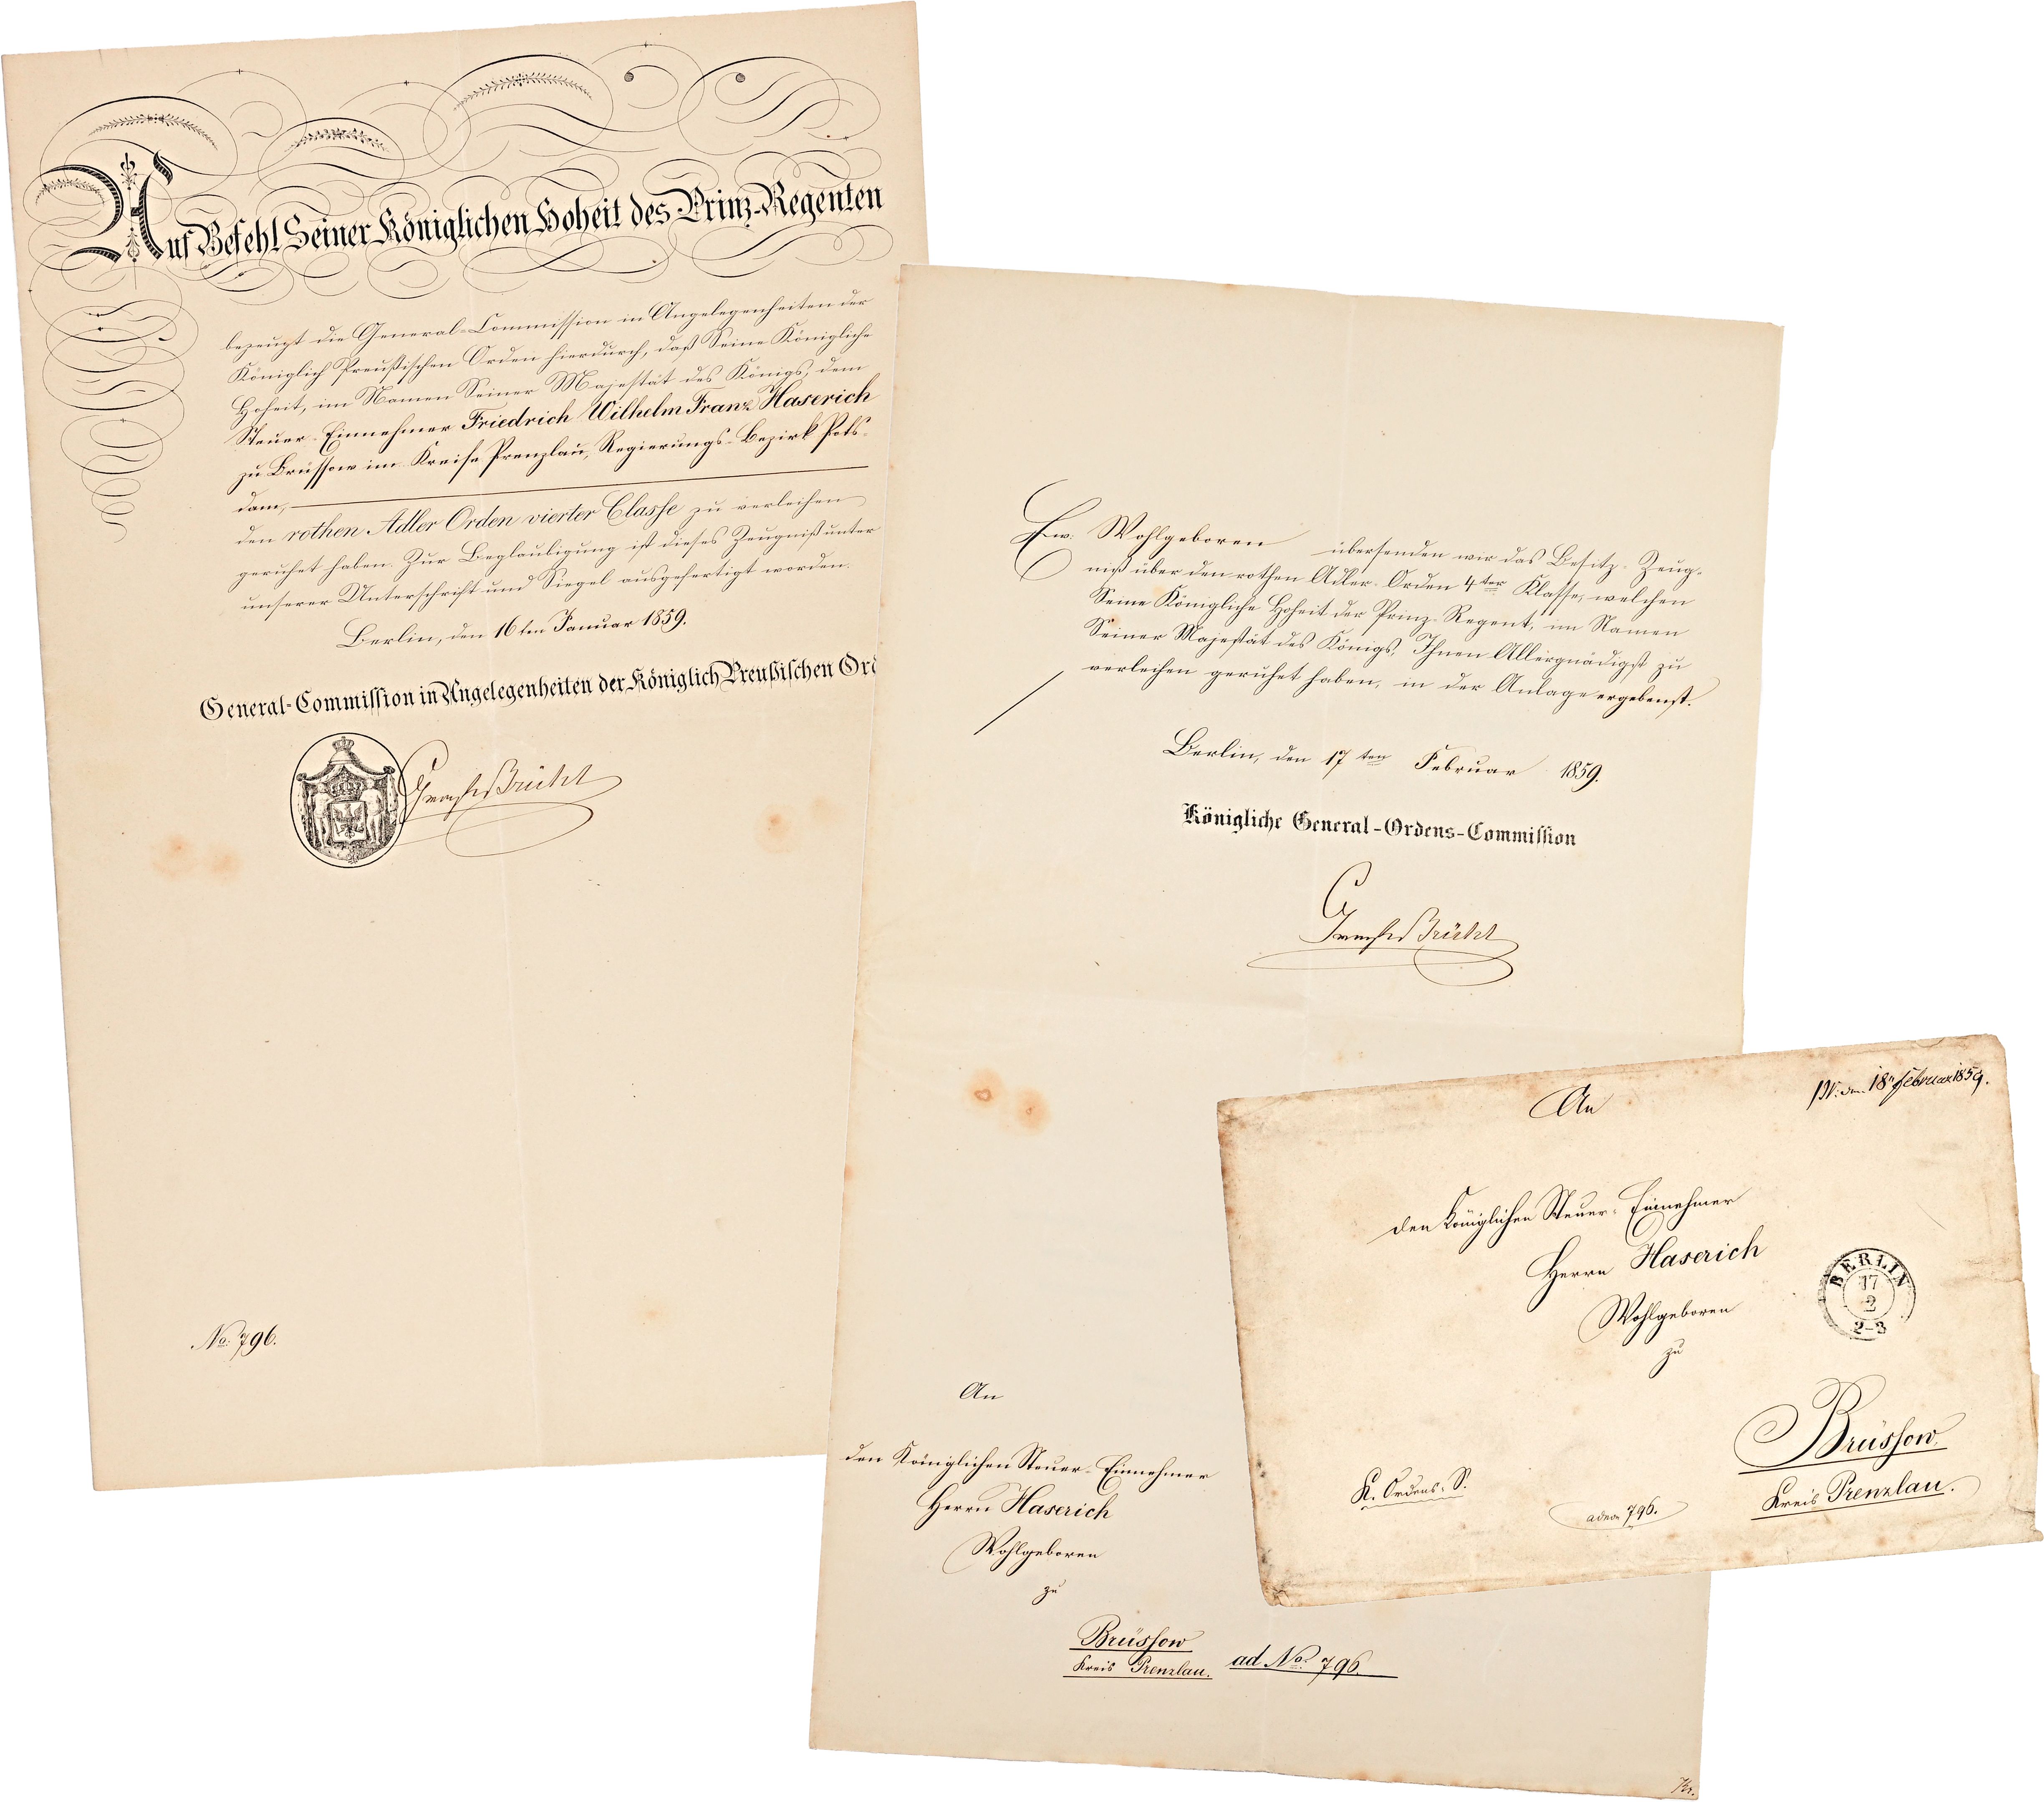 Auf Befehl Seiner Königlichen Hoheit des Prinz-Regenten
bezeugt die General-Commission in Angelegenheiten der
Königlich Preußischen Orden hierdurch, daß Seine Königliche
Hoheit, im Namen Seiner Majestät des Königs, dem
Steuer-Einnehmer Friedrich Wilhelm Franz Haserich
zu Brüssow im Kreise Prenzlau, Regierungs-Bezirk Pots-
dam,
den rothen Adler Orden vierter Classe zu verleihen
geruhet haben. Zur Beglaubigung ist dieses Zeugniß unter
unserer Unterschrift und Siegel ausgefertigt worden.
Berlin, den 16ten Januar 1859.
General-Commission in Angelegenheiten der Königlich Preußischen Ord
No. 796.
Ew. Wohlgeboren übersenden wir das Besitz-Zeug-
niß über den rothen Adler-Orden 4ter Klasse, welchen
Seine Königliche Hoheit der Prinz-Regent, im Namen
Seiner Majestät des Königs, Ihnen Allergnädigst zu
verleihen geruhet haben, in der Anlage ergebenst.
Berlin, den 17ten Februar 1859.
Königliche General-Ordens-Commission
An
den Königlichen Steuer-Einnehmer
Herrn Haserich
Wohlgeboren
zu
Brüssow
Kreis Prenzlau.
ad No. 796.
An
den 18n Februar 1859.
den Königlichen Steuer-Einnehmer
Herrn Haserich
Wohlgeboren
zu
Brüssow
Kreis Prenzlau.
K. Ordens-S.
ad no 796.
BERLIN
17
2
2-3